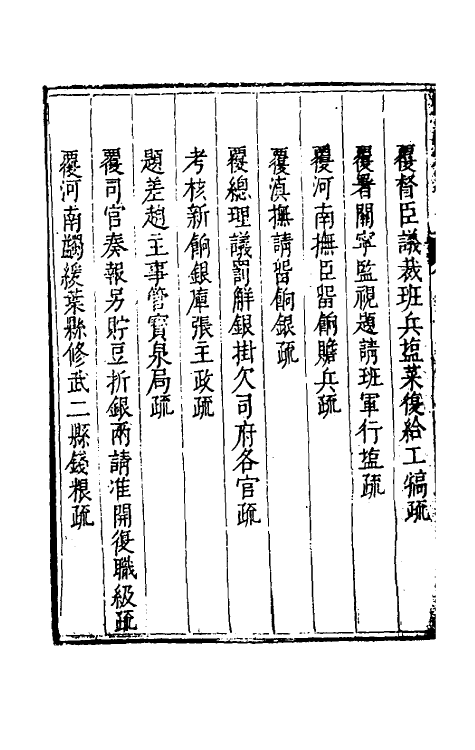 覆督臣議裁班兵塩菜復給工犒疏
覆署關寧監視題請班軍行塩疏
覆河南撫臣留餉贍兵疏
覆滇撫請留餉銀疏
覆總理議罰觧銀掛欠司府各官疏
考核新餉銀庫張主政疏
題差趙主事管寶泉局疏
覆司官奏報另貯豆折銀兩請准開復職級疏
覆河南蠲緩葉縣修武二縣錢粮疏